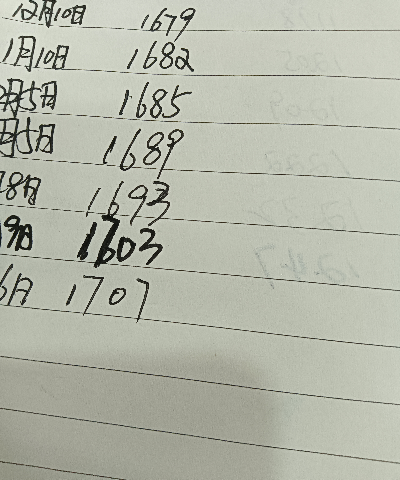 12月10日 1679
1月10日 1682
月5日 1685
月5日 1689
8月 1693
9月 1703
6月 1707